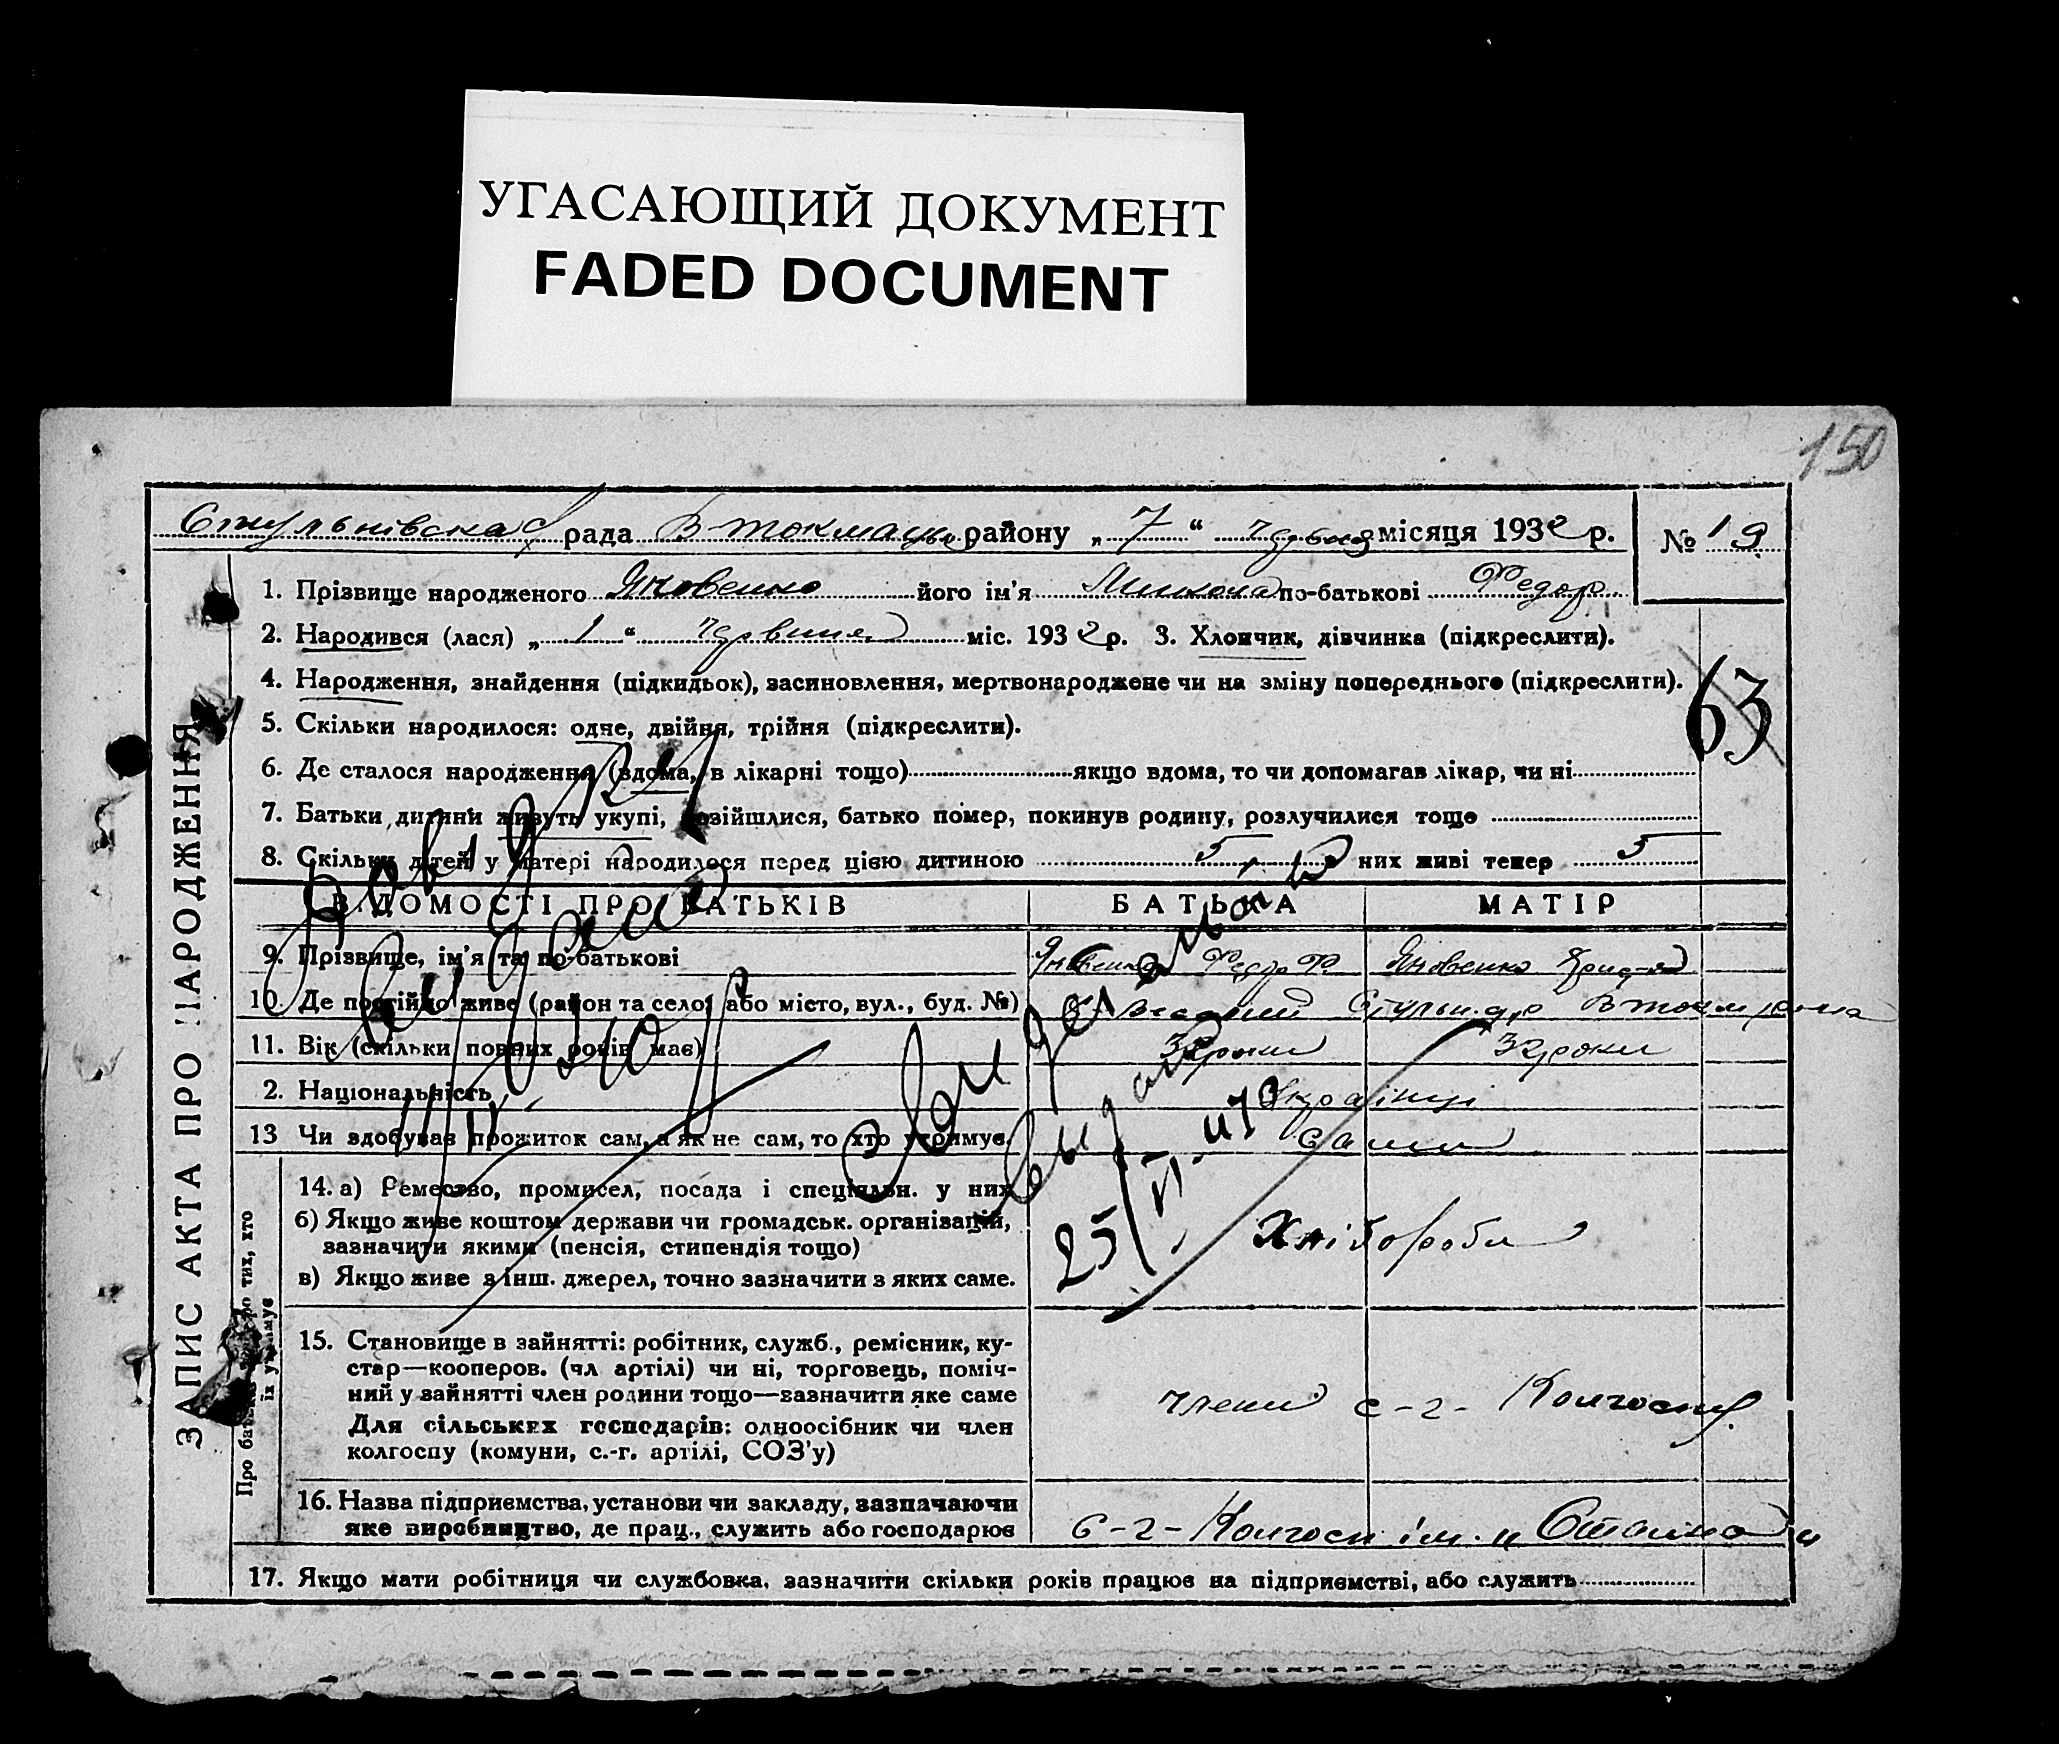 УГАСАЮЩИЙ ДОКУМЕНТ
FADED DOCUMENT
150
рада В токмацьк району „ 7 “ місяця 1932 р. № 19
ЗАПИС АКТА ПРО НАРОДЖЕННЯ
1. Прізвище народженого Яковенко його ім'я Микола по-батькові Федор
2. Народився (лася) „ 1 “ червня міс. 1932 р. 3. Хлопчик, дівчинка (підкреслити).
4. Народження, знайдення (підкидьок), засиновлення, мертвонароджене чи на зміну попереднього (підкреслити).
63
5. Скільки народилося: одне, двійня, трійня (підкреслити).
6. Де сталося народження (вдома, в лікарні тощо) якщо вдома, то чи допомагав лікар, чи ні
7. Батьки дитини живуть укупі, розійшлися, батько помер, покинув родину, розлучилися тощо
8. Скільки дітей у матері народилося перед цією дитиною 5 з них живі тепер 5
ВІДОМОСТІ ПРО БАТЬКІВ БАТЬКА МАТІР
9. Прізвище, ім'я та по-батькові Яковенко Федор Ф. Яковенко
10. Де постійно живе (район та село, або місто, вул., буд. №)
11. Вік (скільки повних років має) 32 роки 32 роки
2. Національність Українці
13 Чи здобував прожиток сам, а як не сам, то хто утримує. сами
Про батьків або про тих, хто їх утримує
14. а) Ремество, промисел, посада і спеціяльн. у них
б) Якщо живе коштом держави чи громадськ. організацій,
зазначити якими (пенсія, стипендія тощо)
Хлібороби
в) Якщо живе з інш. джерел, точно зазначити з яких саме.
25/VI
15. Становище в зайнятті: робітник, служб., ремісник, ку-
стар—кооперов. (чл артілі) чи ні, торговець, поміч-
ний у зайнятті член родини тощо—зазначити яке саме
члени с-г- Колгоспу.
Для сільських господарів: одноосібник чи член
колгоспу (комуни, с.-г. артілі, СОЗ'у)
16. Назва підприємства, установи чи закладу, зазначаючи
яке виробництво, де прац., служить або господарює с-г- Колгосп ім. „Сталіна“
17. Якщо мати робітниця чи службовка, зазначити скільки років працює на підприємстві, або служить